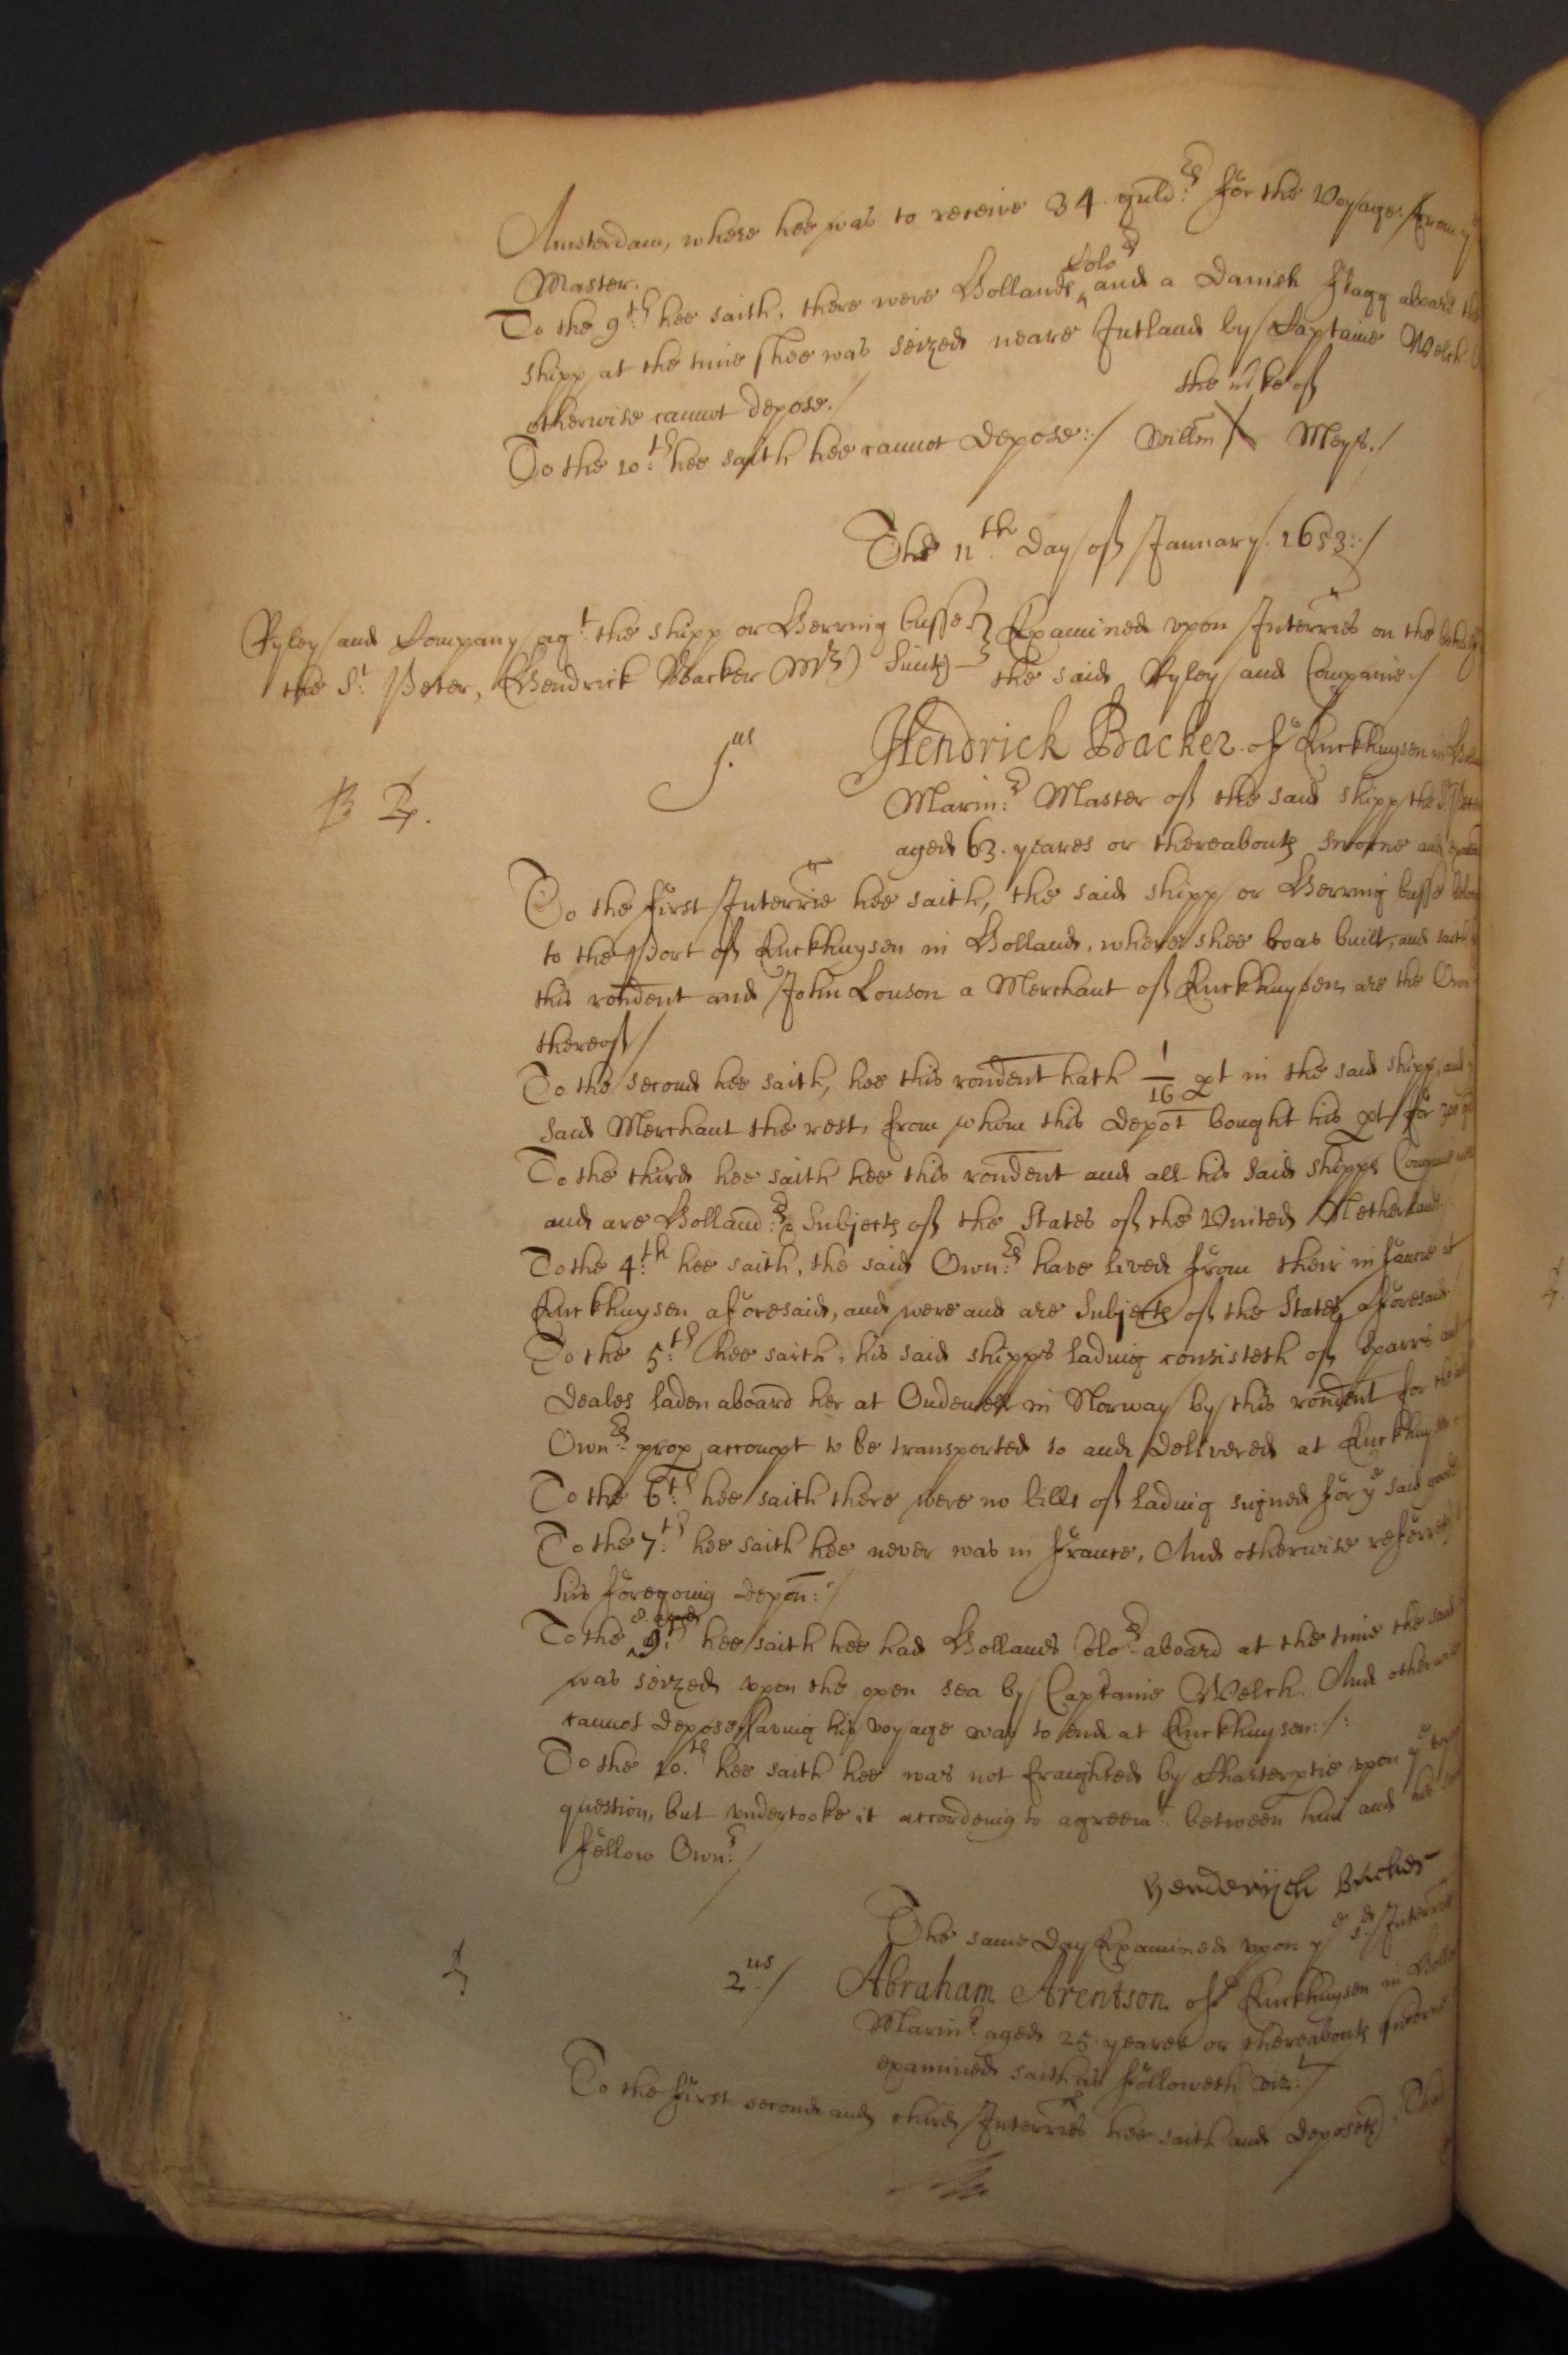 Amsterdam, where hee was to receive 34 guld:rs for the Voyage from ye
Master.
To the 9:th hee saith, there were Hollands Colo:rs and a Danish flagg aboard the
shipp at the time shee was seized neare Jutland by Captaine Welch
otherwise cannot depose./
To the 10:th hee saith hee cannot depose:/ Willm X Meys./
the mke of
The 11.th day of January. 1653:/
Ryley and Company agt. the shipp or Herring busse
the St. Peter, Hendrick Backer Mr)
Examined upon Interries on the behalfe
the said Ryley and Companie:/
B
1.us
Hendrick Backer of Enckhuysen in
Marin:r Master of the said shipp the St Peter
aged 63. yeares or thereabouts sworne and
To the first Interrie hee saith, the said shipp or Herring busse
to the Port of Enckhuysen in Holland, where shee was built, and saith
this rondent and John Louson a Merchant of Enckhuysen are the
thereof/
To the second hee saith, hee this rondent hath 1/16 pt in the said shipp, and
said Merchant the rest, from whom this depot bought his pt for
To the third hee saith hee this rondent and all his said shipps
and are Holland:rs Subjects of the States of the United Netherlands
To the 4:th hee saith, the said Own:rs have lived from their infancie at
Enckhuysen aforesaid, and were and are Subjects of the States aforesaid
To the 5:th hee saith, his said shipps lading consisteth of Sparrs and
deales laden aboard her at in Norway by this rondent for
Own:rs prop accompt to be transported to and delivered at
To the 6:th hee saith there were no bills of lading signed for ye said
To the 7:th hee saith hee never was in France, And otherwise referreth
his foregoing depon:/
To the 9:th hee saith hee had Hollands Colo:rs aboard at the time the said
was seized upon the open sea by Captaine Welch. And otherwise
cannot depose saving his voyage was to end at Enckhuysen:/:
To the 10:th hee saith hee was not fraighted by Charterptie upon ye
question, but undertooke it according to agreemt. between him and his
fellow Own:rs/
henderijch backer
The same day Examined upon ye sd. Interries
2.us/
Abraham Arentson of Enckhuysen in
Marin:r aged 25 yeares or thereabouts sworne
examined saith as followeth viz:t/
To the first second and third Interries hee saith and deposeth, That